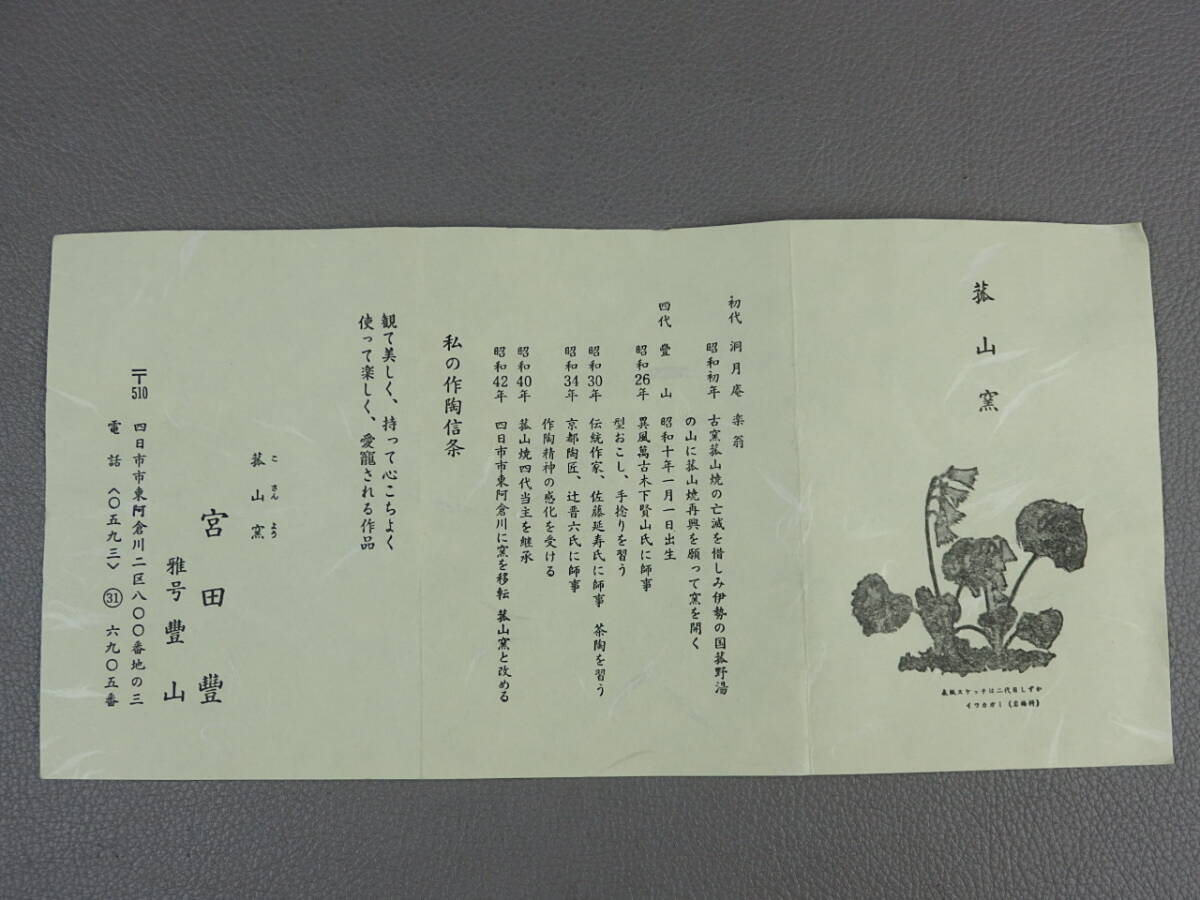 菰山窯
表紙スケッチは二代目しずか
イワカガミ(岩梅科)
初代 洞月庵 楽翁
昭和初年 古窯菰山焼の亡滅を惜しみ伊勢の国菰野湯
の山に菰山焼再興を願って窯を開く
四代 豊山 昭和十年一月一日出生
昭和26年 異風萬古木下賢山氏に師事
型おこし、手捻りを習う
昭和30年 伝統作家、佐藤延寿氏に師事 茶陶を習う
昭和34年 京都陶匠、辻晋六氏に師事
作陶精神の感化を受ける
昭和40年 菰山焼四代当主を継承
昭和42年 四日市市東阿倉川に窯を移転 菰山窯と改める
私の作陶信条
観て美しく、持って心こちよく
使って楽しく、愛寵される作品
こさんよう
菰山窯
宮田豊
雅号 豊山
〒510 四日市市東阿倉川二区八〇〇番地の三
電話〈〇五九三〉㉛六九〇五番